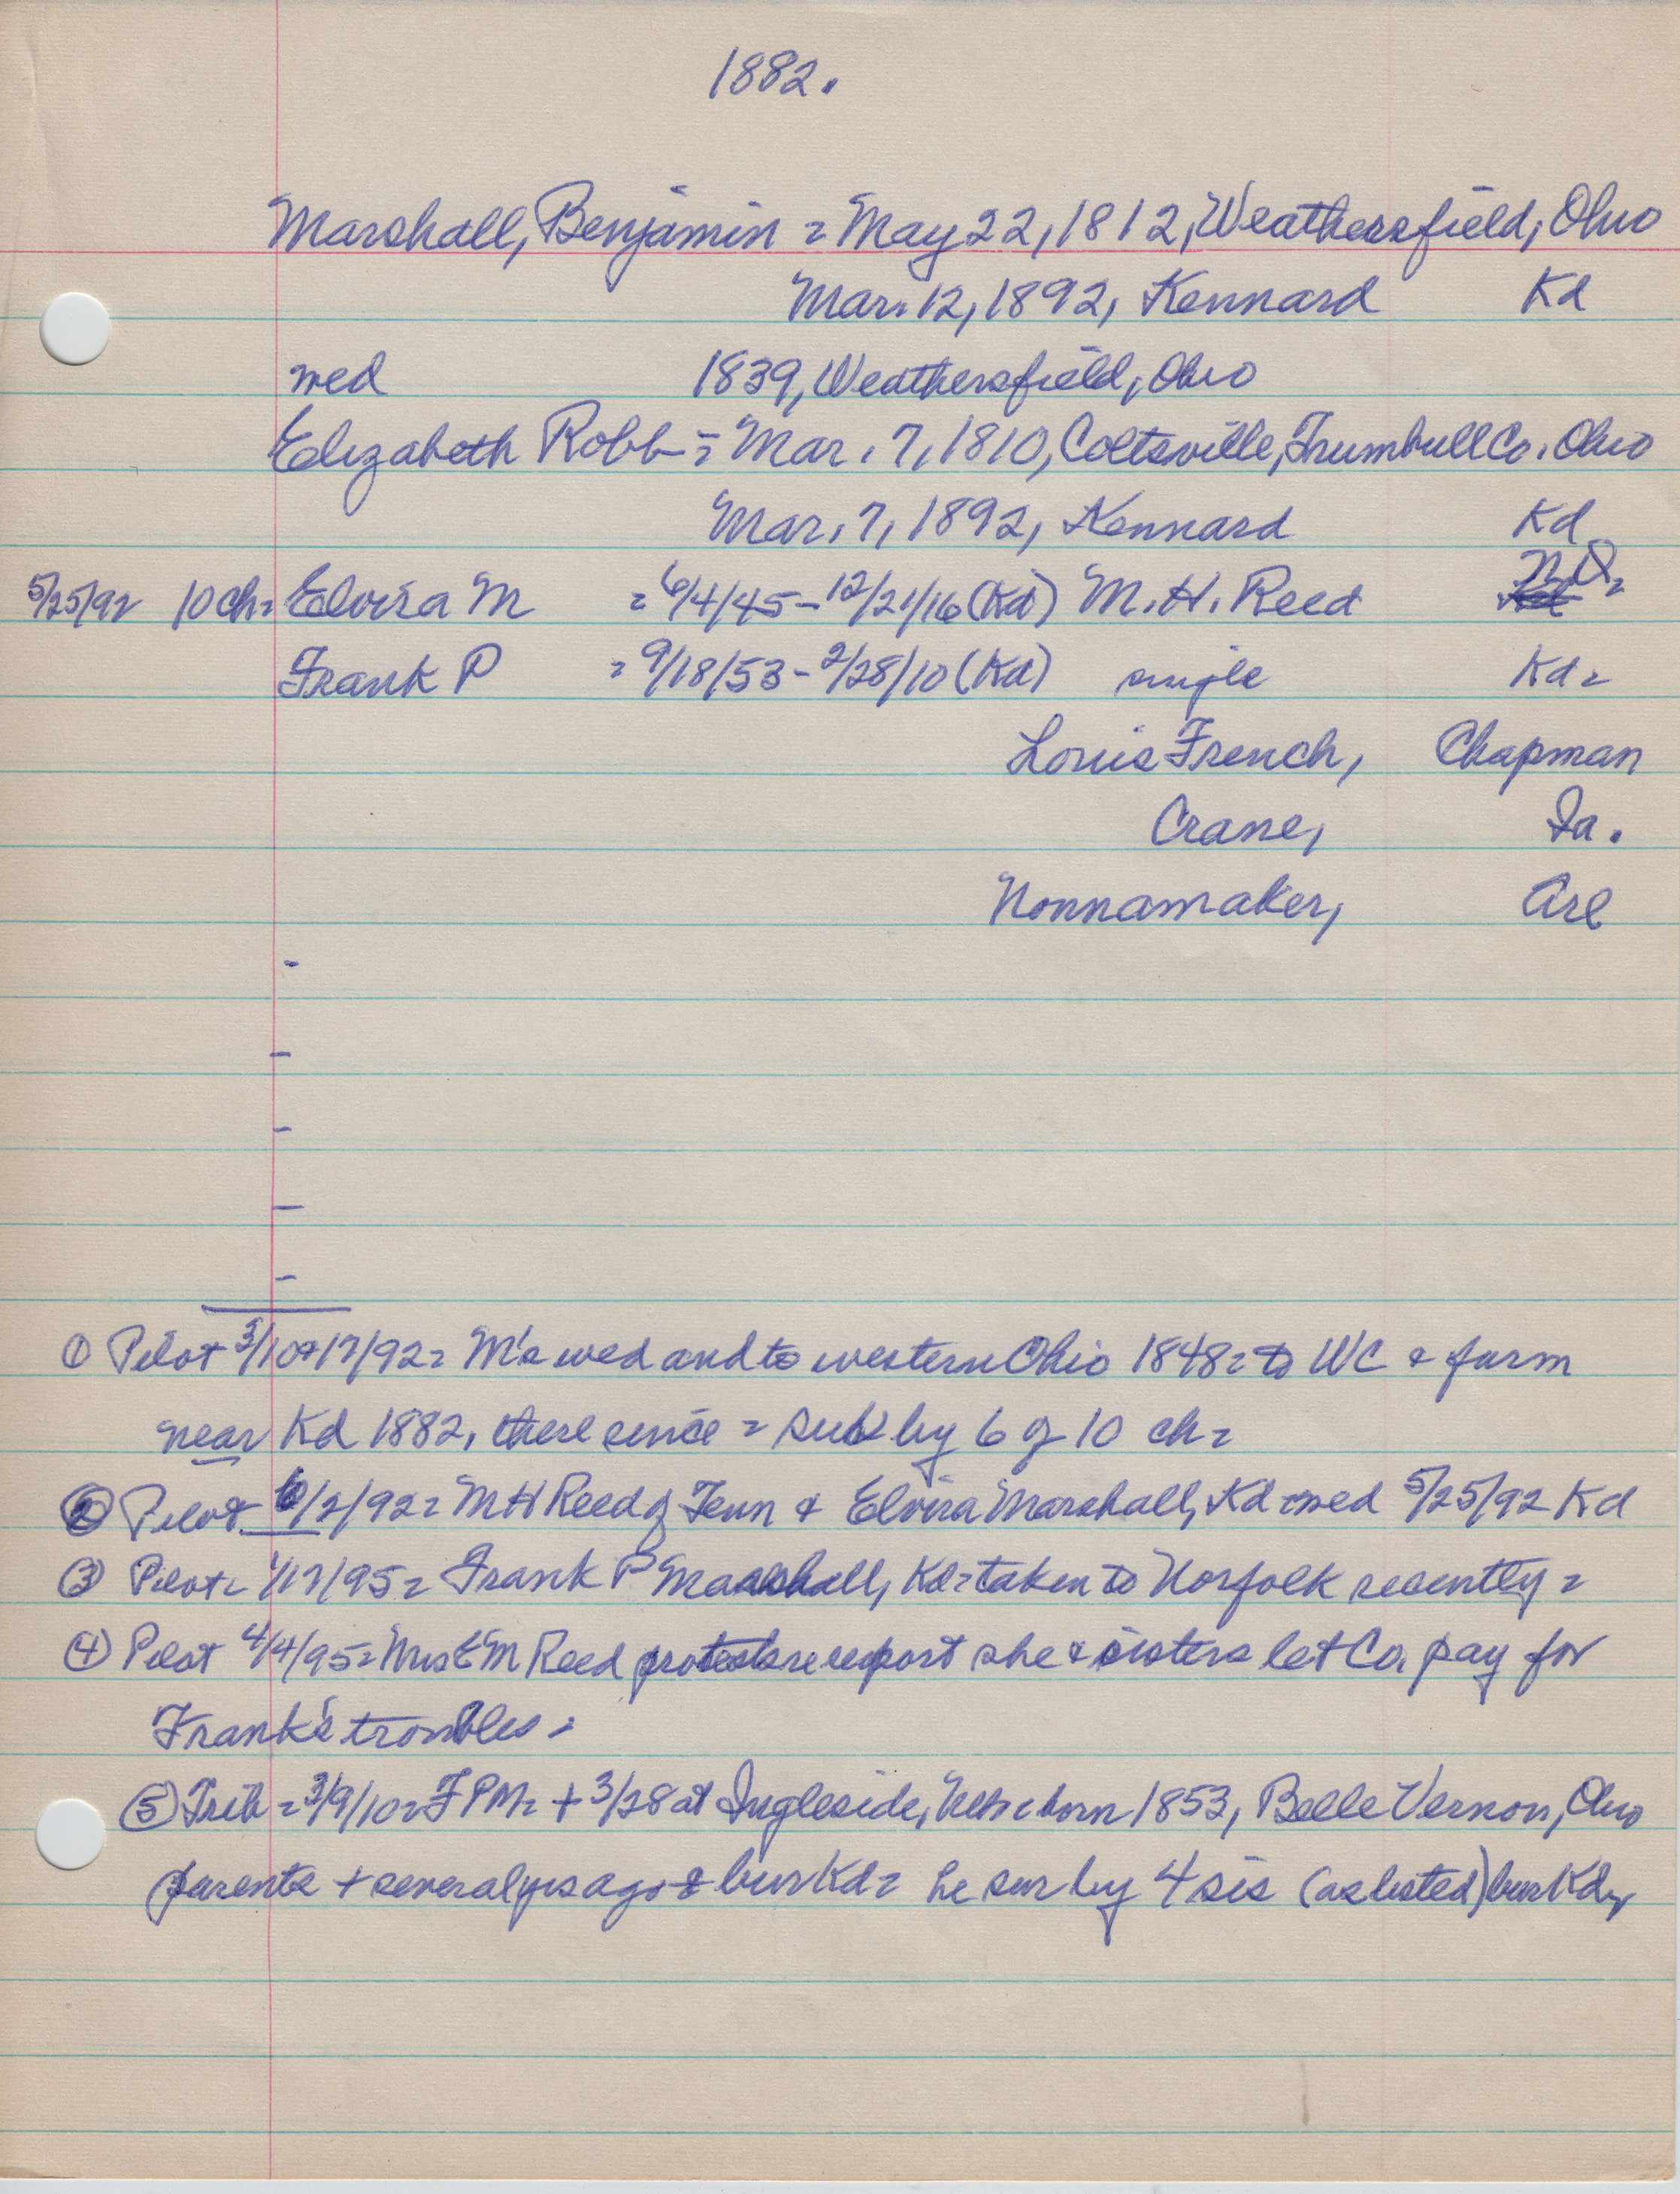 1882.
Marshall, Benjamin = May 22, 1812, Weathersfield, Ohio
Mar. 12, 1892, Kennard Kd
wed 1839, Weathersfield, Ohio
Elizabeth Robb = Mar. 7, 1810, Coltsville, Trumbull Co. Ohio
Mar. 7, 1892, Kennard Kd
5/25/92 10 ch = Elvira M = 6/4/45 - 12/21/16 (Kd) M. H. Reed
Frank P = 9/18/53 - 2/28/10 (Kd) single Kd =
Louis French, Chapman
Crane, Ia.
Nonnamaker, Arl
-
-
-
-
-
① Pilot 3/10+17/92 = M's wed and to western Ohio 1848 = to WC & farm
near Kd 1882, there since = sur by 6 of 10 ch =
② Pilot 6/2/92 = M H Reed of Tenn & Elvira Marshall, Kd = wed 5/25/92 Kd
③ Pilot = 1/17/95 = Frank P Marshall, Kd = taken to Norfolk recently =
④ Pilot 4/4/95 = Mrs E M Reed protests re report she & sisters let Co. pay for
Frank's troubles =
⑤ Trib = 3/9/10 = F P M = + 3/28 at Ingleside, Neb = born 1853, Belle Vernon, Ohio
parents + several yrs ago & bur Kd = he sur by 4 sis (as listed) bur Kd